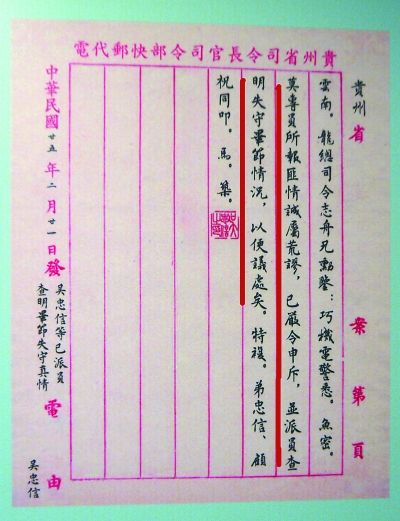 貴州省司令長官司令部快郵代電
貴州省 案 第 頁
雲南。龍總司令志舟兄勳鑒:巧機電警悉。魚密。
莫專員所報匪情誠屬荒謬,已嚴令申斥,並派員查
明失守畢節情況,以便議處矣。特復。弟忠信、顧
祝同叩。馬。築。
吳忠信等已派員
查明畢節失守真情
吳忠信
中華民國廿五年二月廿一日發電由